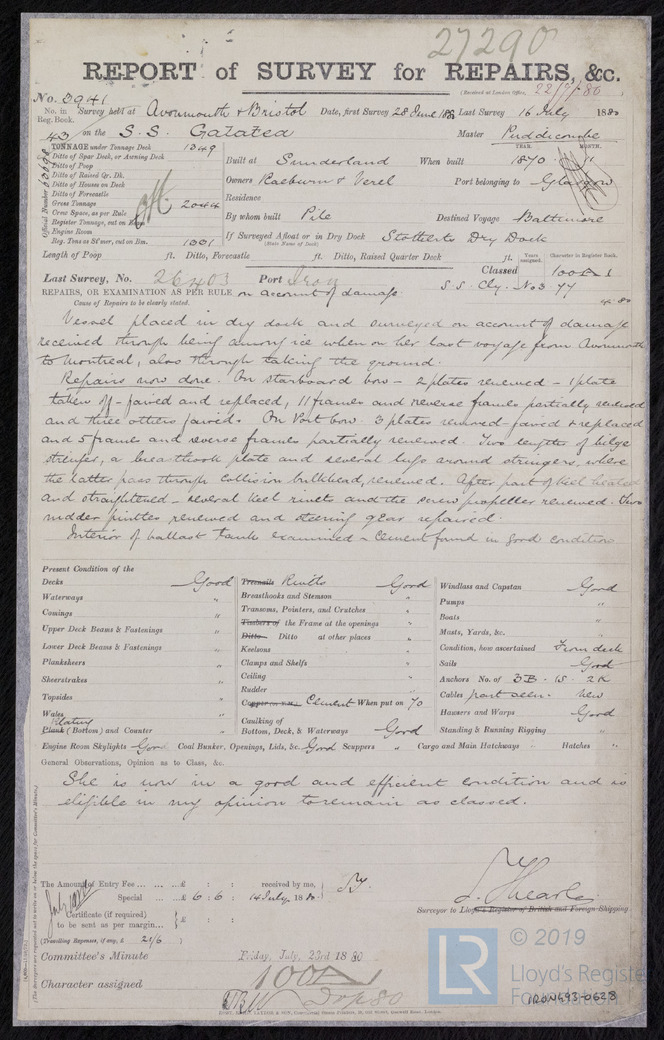 27290
REPORT of SURVEY for REPAIRS, &c.
(Received at London Office, 22/7/80
No. 3941
No. in Reg. Book. Survey held at Avonmouth & Bristol Date, first Survey 28 June 1880 Last Survey 16 July 1880
43 on the S.S. Galatea Master Puddicombe
TONNAGE under Tonnage Deck 1349
Ditto of Spar Deck, or Awning Deck
Ditto of Poop
Ditto of Raised Qr. Dk.
Ditto of House on Deck
Ditto of Forecastle
Gross Tonnage 2044
Crew Space, as per Rule
Register Tonnage, cut on Beam
Engine Room
Reg. Tons as St'mer, cut on Bm. 1331
Official Number
Built at Sunderland When built YEAR. 1870 MONTH. 11
Owners Raeburn & Verel Port belonging to Glasgow
Residence
By whom built Pile Destined Voyage Baltimore
If Surveyed Afloat or in Dry Dock Stotherts Dry Dock
(State Name of Dock)
Length of Poop ft. Ditto, Forecastle ft. Ditto, Raised Quarter Deck ft.
Years assigned. Character in Register Book.
Last Survey, No. 26403 Port Iron Classed 100A1
REPAIRS, OR EXAMINATION AS PER RULE on account of damage S.S. Cly. No 3 77
Cause of Repairs to be clearly stated.
Vessel placed in dry dock and surveyed on account of damage
received through being among ice when on her last voyage from Avonmouth
to Montreal, also through taking the ground.
Repairs now done. On starboard bow – 2 plates renewed – 1 plate
taken off – faired and replaced, 11 frames and reverse frames partially renewed
and three others faired. On Port bow 3 plates removed – faired & replaced
and 5 frames and reverse frames partially renewed. Two lengths of bilge
stringer, a breasthook plate and several lugs around stringers, where
the latter pass through collision bulkhead, renewed. After part of keel heated
and straightened – several keel rivets and the screw propeller renewed. Two
rudder pintles renewed and steering gear repaired.
Interior of ballast tanks examined – cement found in good condition
Present Condition of the
Decks Good
Waterways "
Comings "
Upper Deck Beams & Fastenings "
Lower Deck Beams & Fastenings "
Planksheers "
Sheerstrakes "
Topsides "
Wales "
Plating
Plank (Bottom) and Counter "
Treenails Rivets Good
Breasthooks and Stemson "
Transoms, Pointers, and Crutches "
Timbers of the Frame at the openings "
Ditto Ditto at other places "
Keelsons "
Clamps and Shelfs "
Ceiling "
Rudder "
Copper or Y.M. Cement When put on 70
Caulking of
Bottom, Deck, & Waterways Good
Windlass and Capstan Good
Pumps "
Boats "
Masts, Yards, &c. "
Condition, how ascertained From deck
Sails Good
Anchors No. of 3B. 1S. 2K
Cables part seen. New
Hawsers and Warps Good
Standing & Running Rigging "
Engine Room Skylights Good Coal Bunker, Openings, Lids, &c. Good Scuppers " Cargo and Main Hatchways " Hatches "
General Observations, Opinion as to Class, &c.
She is now in a good and efficient condition and is
eligible in my opinion to remain as classed.
The Amount of Entry Fee ... ... ... £ : : received by me,
Special ... £ 6 : 6 : 14 July 1880
Certificate (if required)
to be sent as per margin...
(Travelling Expenses, if any, £ 21/6 )
Surveyor to Lloyd's Register of British and Foreign Shipping
Committee's Minute Friday, July, 23rd 1880
Character assigned 100A
© 2019
LR
Lloyd's Register
Foundation
IRON693-0628